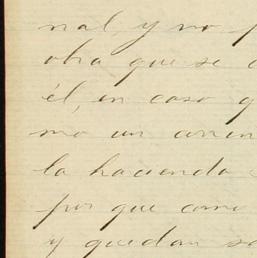 nal, y no
obra que se
él, en caso q
mo un arren
la hacienda
por que como
y quedan